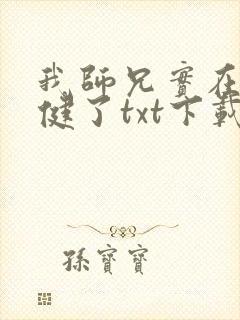 我師兄實在
健了txt下載
孫寶寶